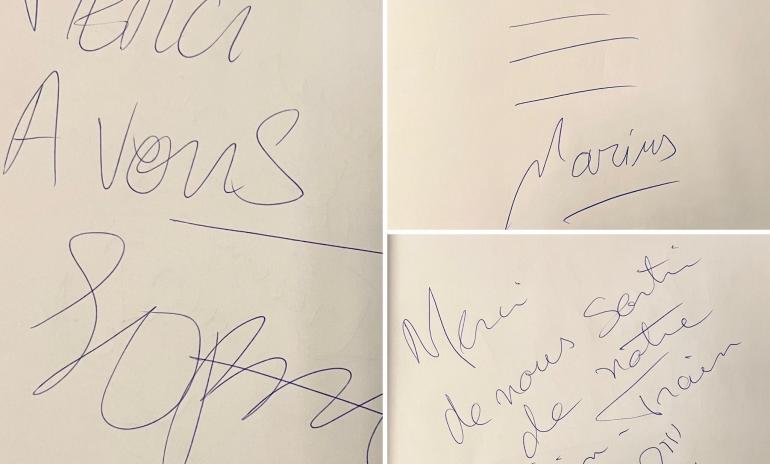 Merci
A vous
Marius
Merci
de nous Sortir
de notre
Train